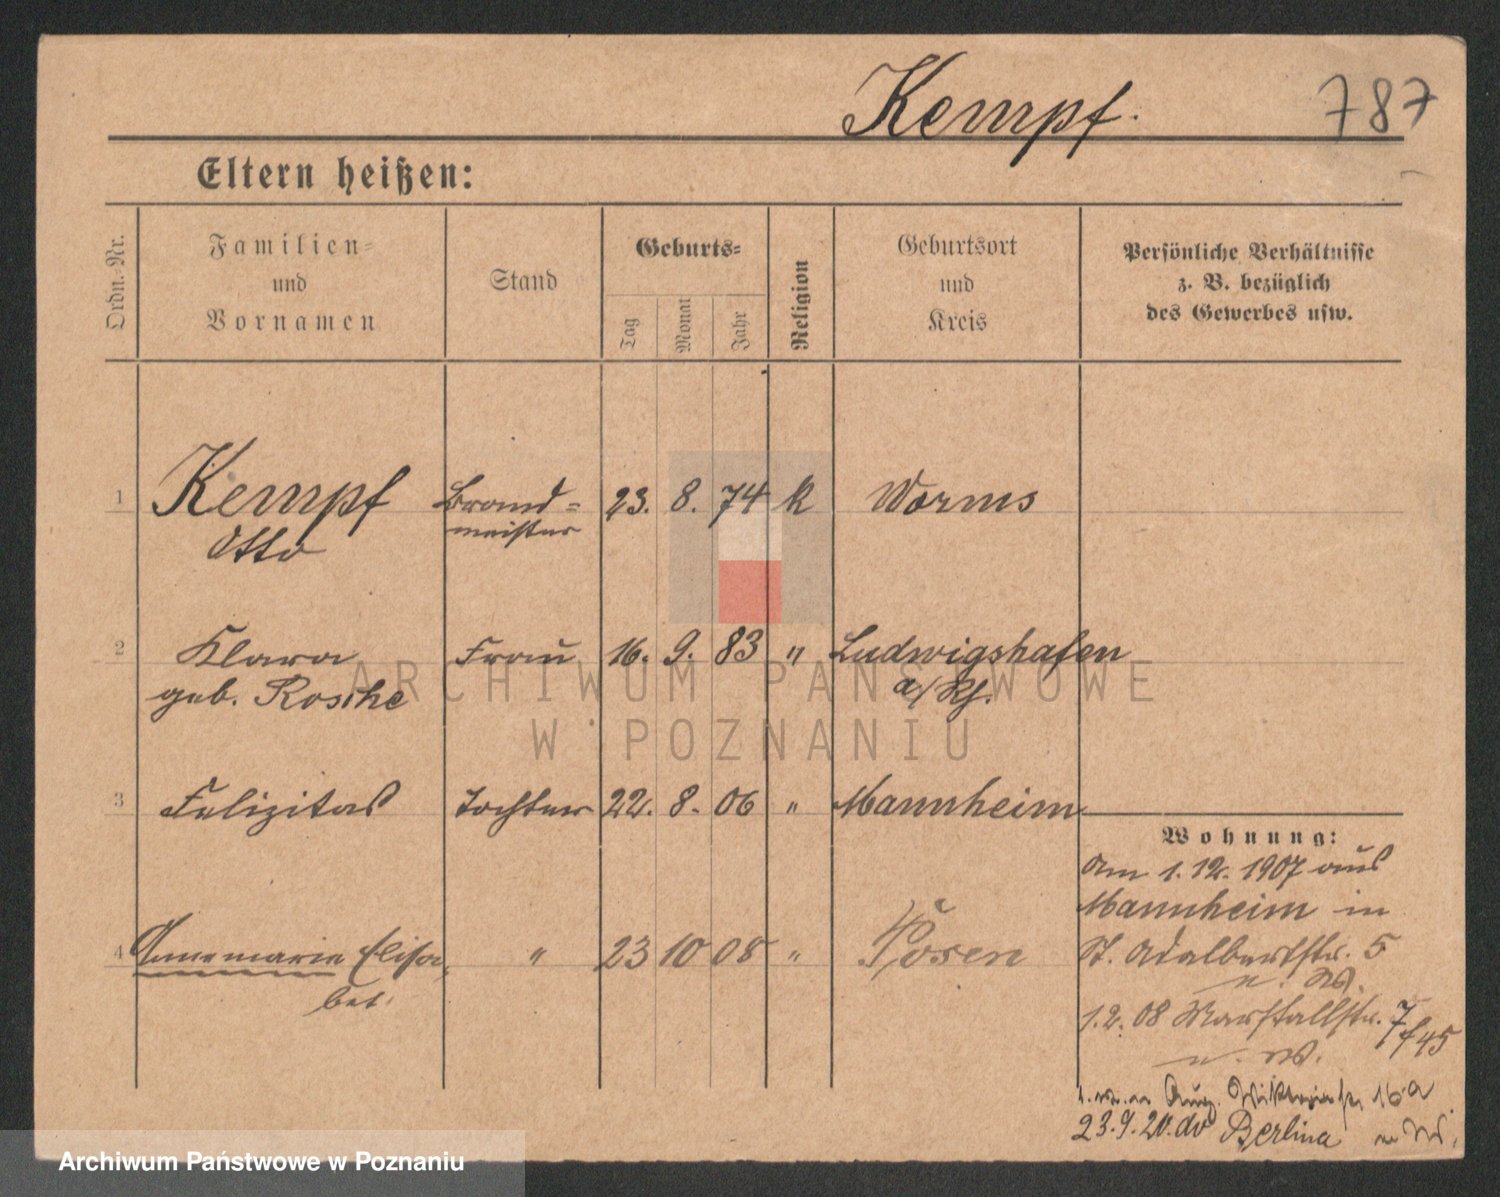 Kempf.
787
Eltern heißen:
Ordn.-Nr.
Familien-
und
Vornamen
Stand
Geburts-
Tag
Monat
Jahr
Religion
Geburtsort
und
Kreis
Persönliche Verhältnisse
z. B. bezüglich
des Gewerbes usw.
1 Kempf Brand- 23. 8. 74 k Worms
Otto meister
2 Klara Frau 16. 9. 83 " Ludwigshafen
geb. Rosche a/Rh.
3 Felizitas Tochter 22. 8. 06 " Mannheim
Wohnung:
Am 1.12.1907 aus
Mannheim in
4 Annemarie Elisa- " 23 10 08 " Posen
bet.
St. Adalbertstr. 5
n. W.
1.2.08 Marstallstr. 7
f 45
n. W.
16a
23.9.20. do Berlina n W.
ARCHIWUM PAŃSTWOWE
W POZNANIU
Archiwum Państwowe w Poznaniu